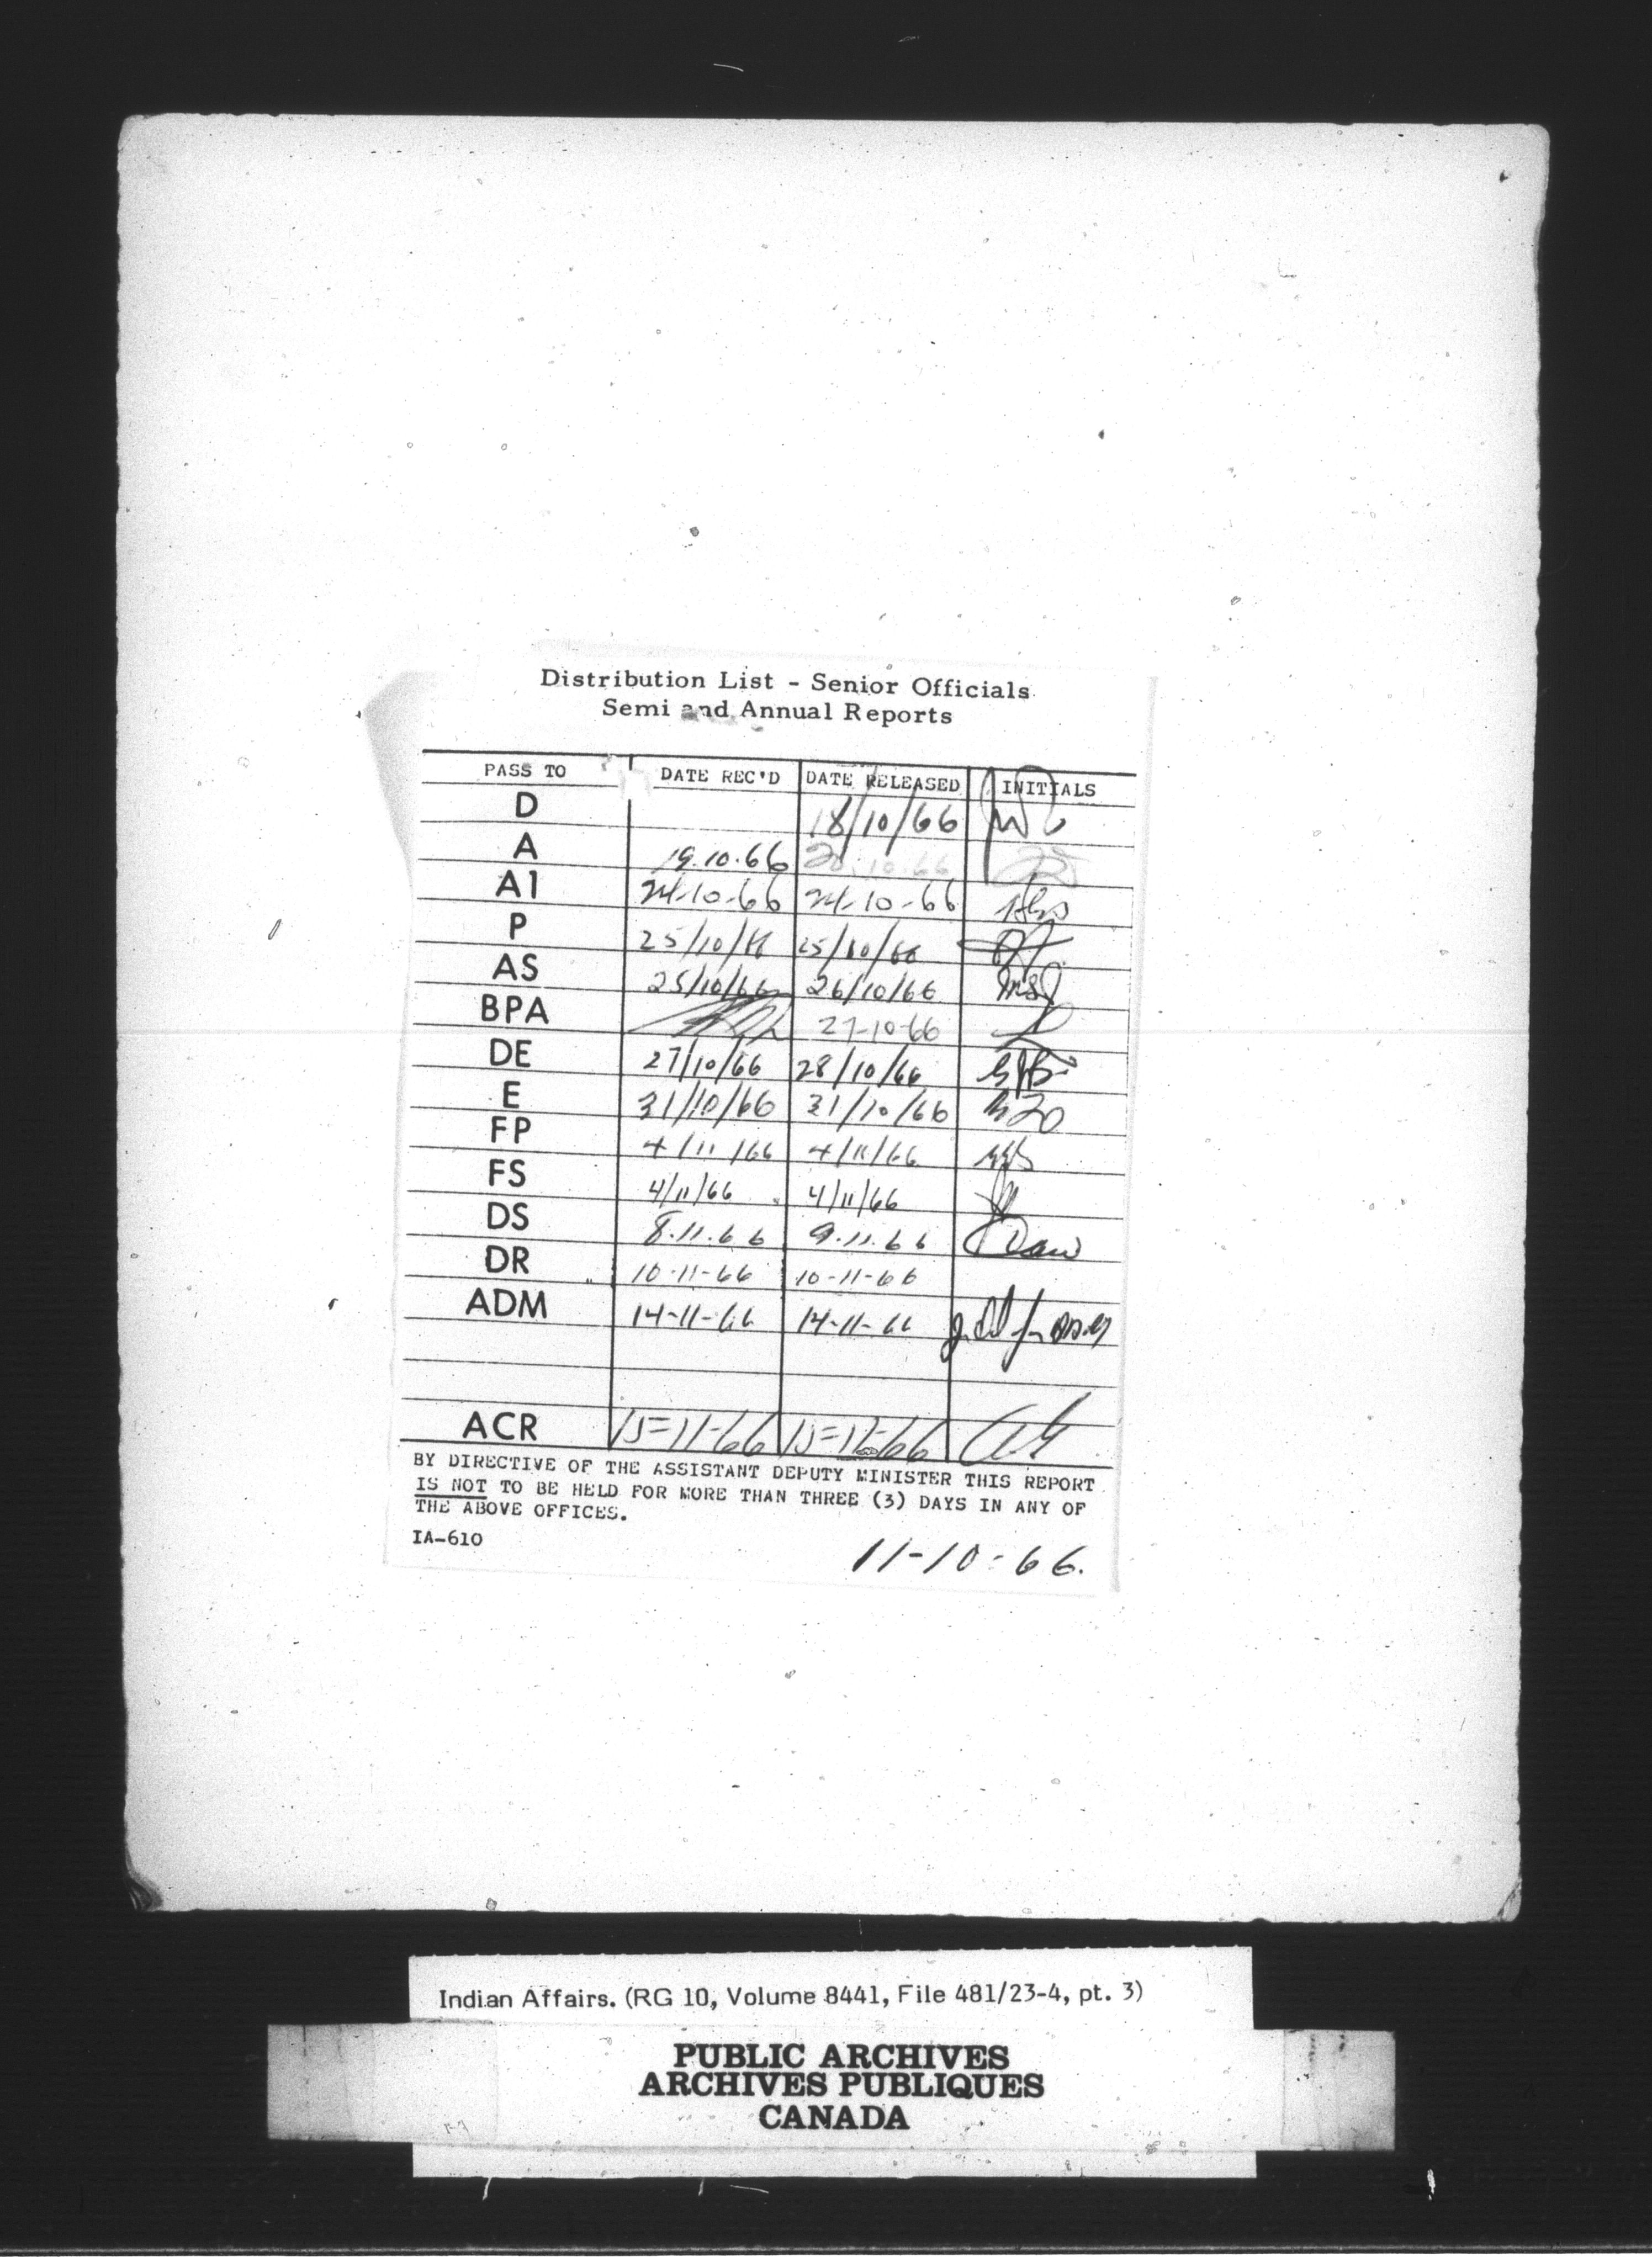 Distribution List - Senior Officials
Semi and Annual Reports
PASS TO DATE REC'D DATE RELEASED INITIALS
D 18/10/66
A 19.10.66 20.10.66
A1 24-10-66 24-10-66
P 25/10/66 25/10/66
AS 25/10/66 26/10/66
BPA 27-10-66
DE 27/10/66 28/10/66
E 31/10/66 31/10/66
FP 4/11/66 4/11/66
FS 4/11/66 4/11/66
DS 8.11.66 9.11.66
DR 10-11-66 10-11-66
ADM 14-11-66 14-11-66
ACR 15=11-66
BY DIRECTIVE OF THE ASSISTANT DEPUTY MINISTER THIS REPORT
IS NOT TO BE HELD FOR MORE THAN THREE (3) DAYS IN ANY OF
THE ABOVE OFFICES.
IA-610
11-10-66.
Indian Affairs. (RG 10, Volume 8441, File 481/23-4, pt. 3)
PUBLIC ARCHIVES
ARCHIVES PUBLIQUES
CANADA